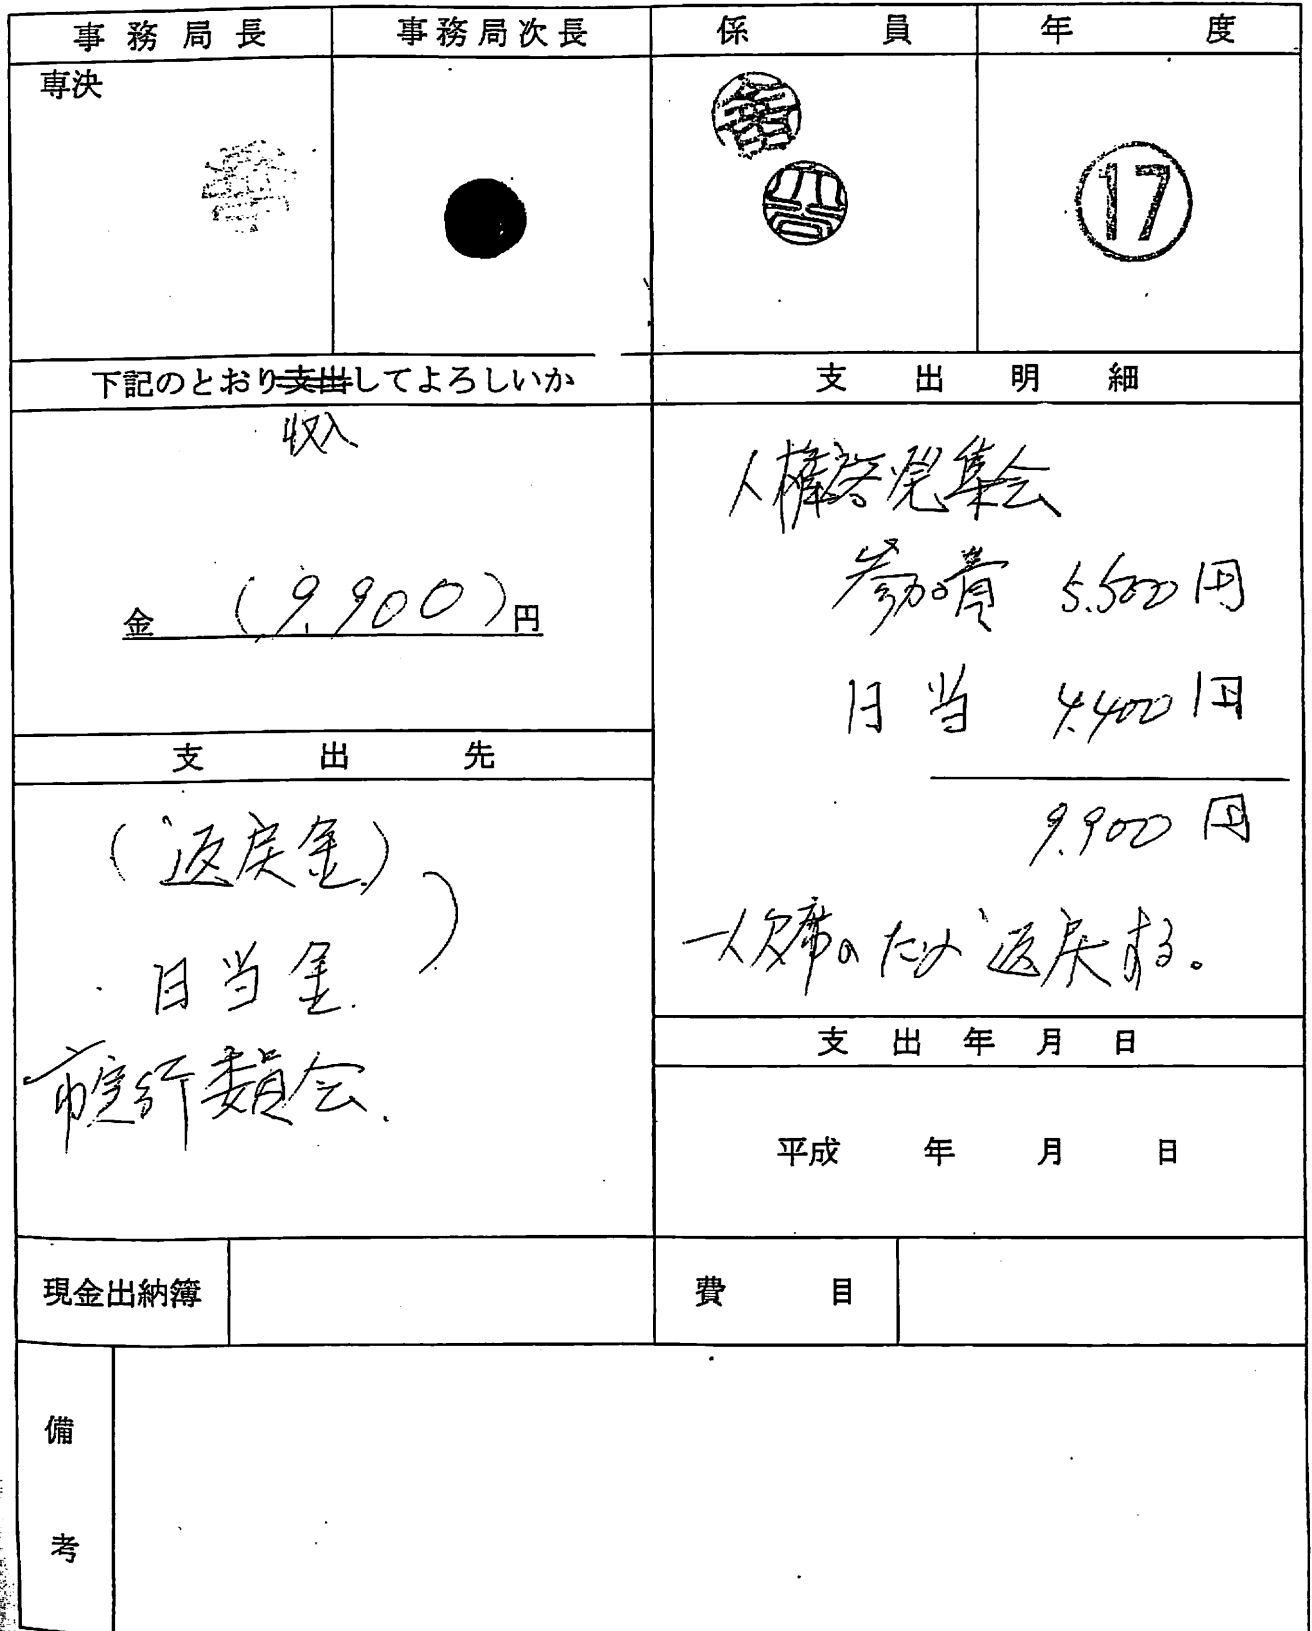 事務局長 事務局次長 係員 年度
専決
17
下記のとおり支出してよろしいか
収入
金 (9,900)円
支出先
(返戻金)
日当金
市実行委員会
支出明細
人権啓発集会
参加費 5,500円
日当 4,400円
9,900円
一人欠席のため返戻する。
支出年月日
平成 年 月 日
現金出納簿
費目
備考